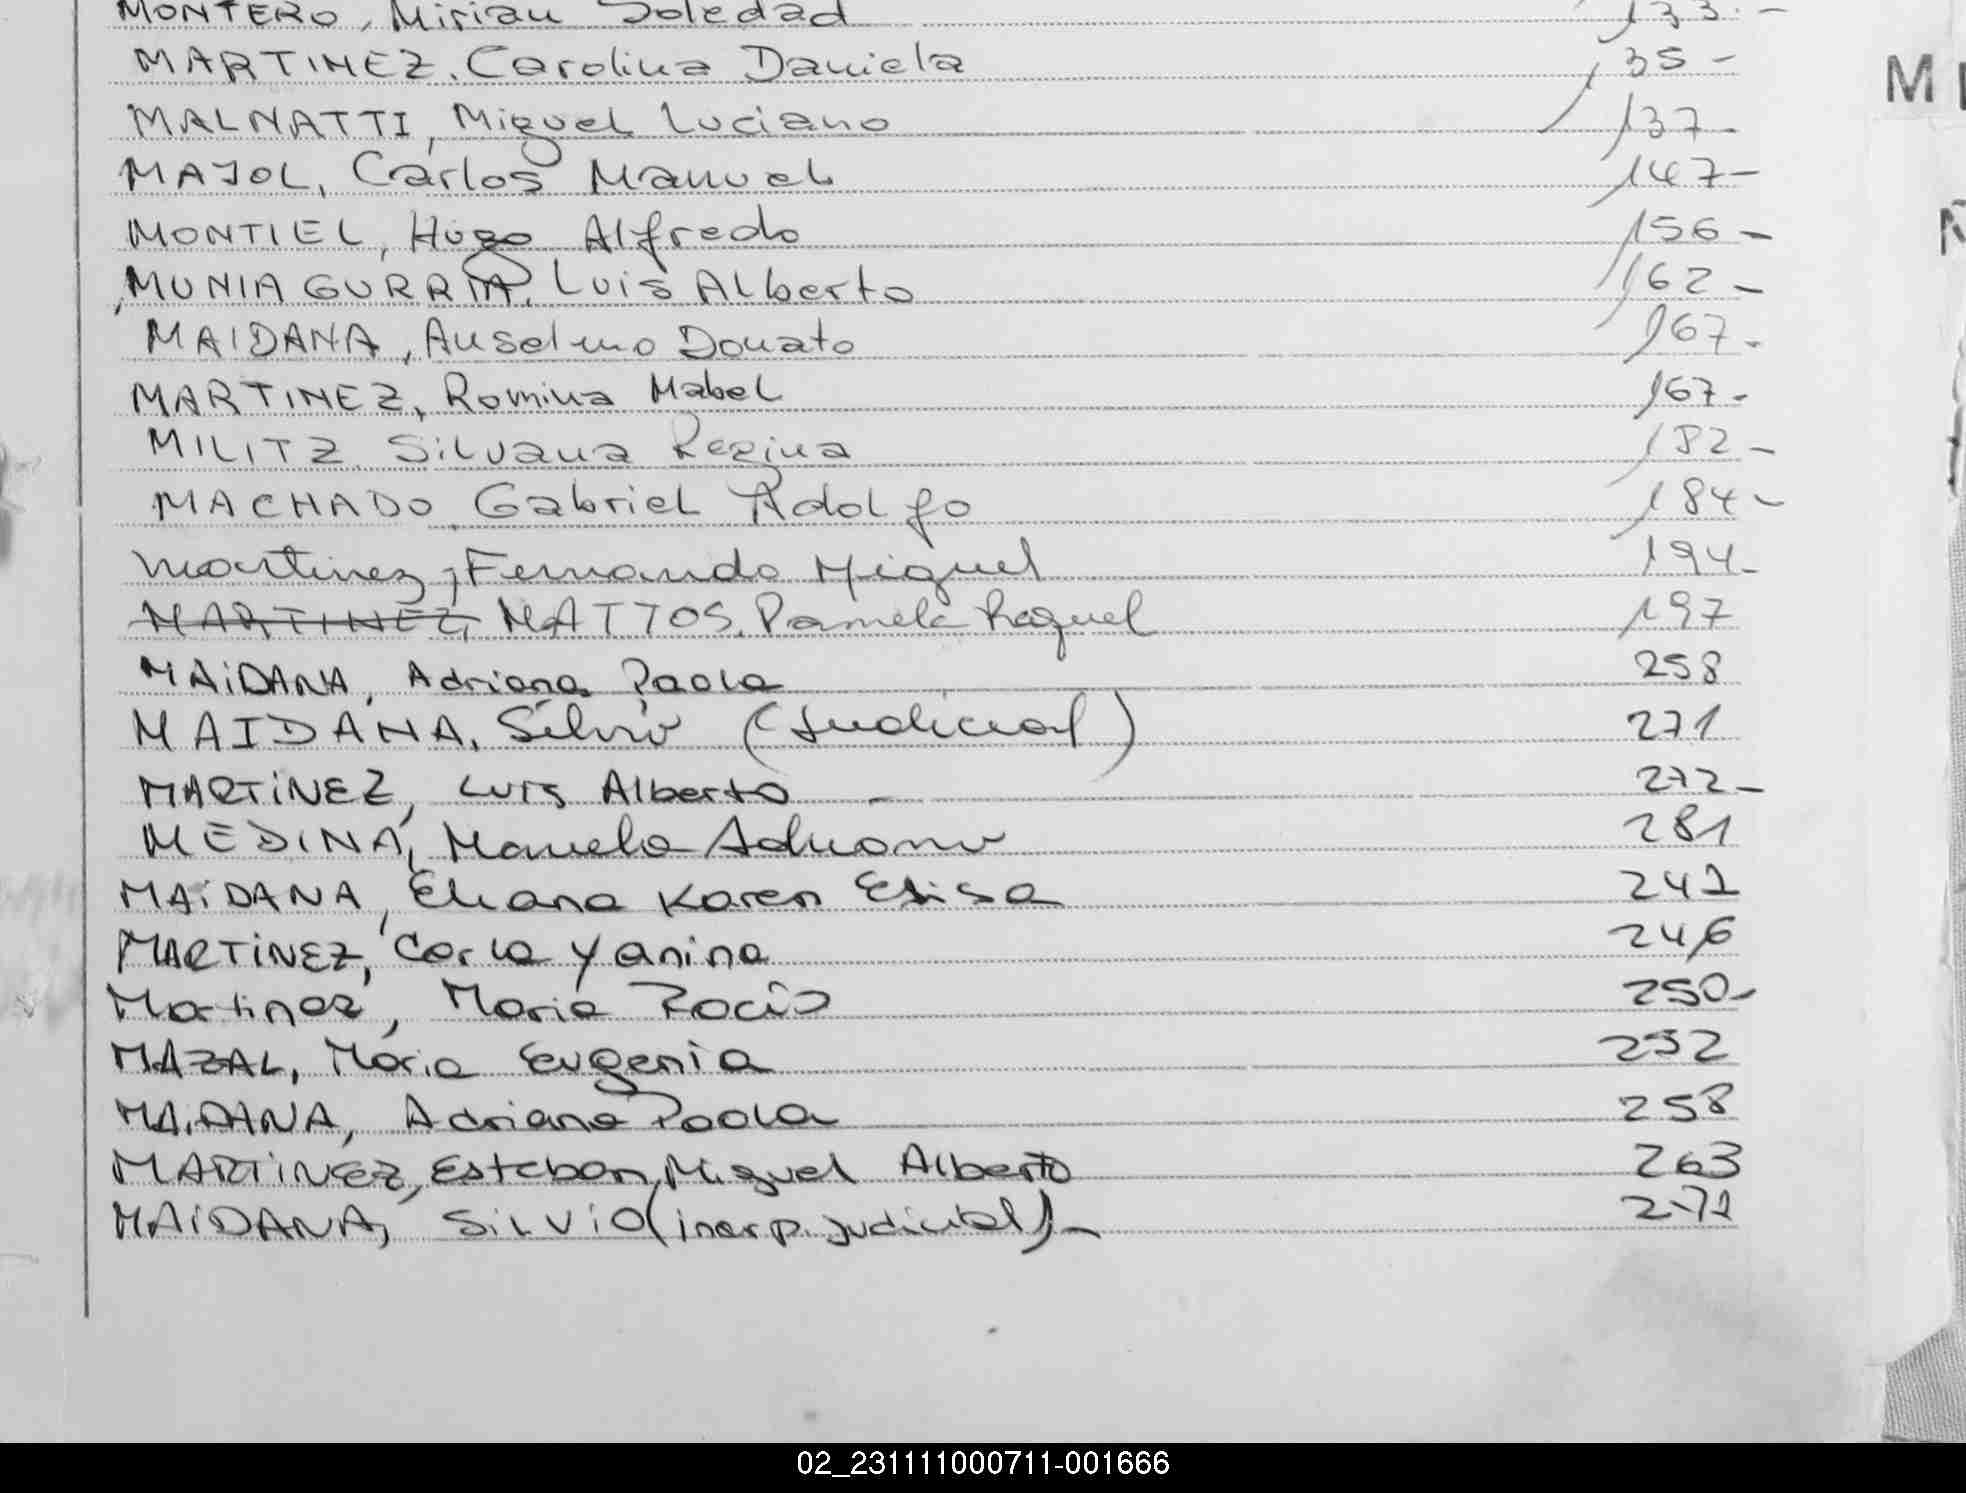 MONTERO, Mirian Soledad 133.-
MARTINEZ, Carolina Daniela 135-
MALNATTI, Miguel Luciano 137-
MAJOL, Carlos Manuel 147-
MONTIEL, Hugo Alfredo 156-
MUNIAGURRIA, Luis Alberto 162-
MAIDANA, Anselmo Donato 167-
MARTINEZ, Romina Mabel 167-
MILITZ Silvana Regina 182-
MACHADO, Gabriel Adolfo 184-
Martinez, Fernando Miguel 194-
MARTINEZ, MATTOS, Pamela Raquel 197
MAiDANA, Adriana Paola 258
MAIDANA, Silvio (Judicial) 271
MARTiNEZ, Luis Alberto - 272-
MEDINA, Marcela Adriana 281
MAiDANA, Eliana Karen Elisa 242
MARTiNEZ, Carla Yanina 246
Martinez, Maria Rocio 250-
MAZAL, Maria Eugenia 252
MAiDANA, Adriana Paola 258
MARTiNEZ, Esteban Miguel Alberto 263
MAiDANA, SiLViO (inscrp. judicial).- 271
M
02_231111000711-001666